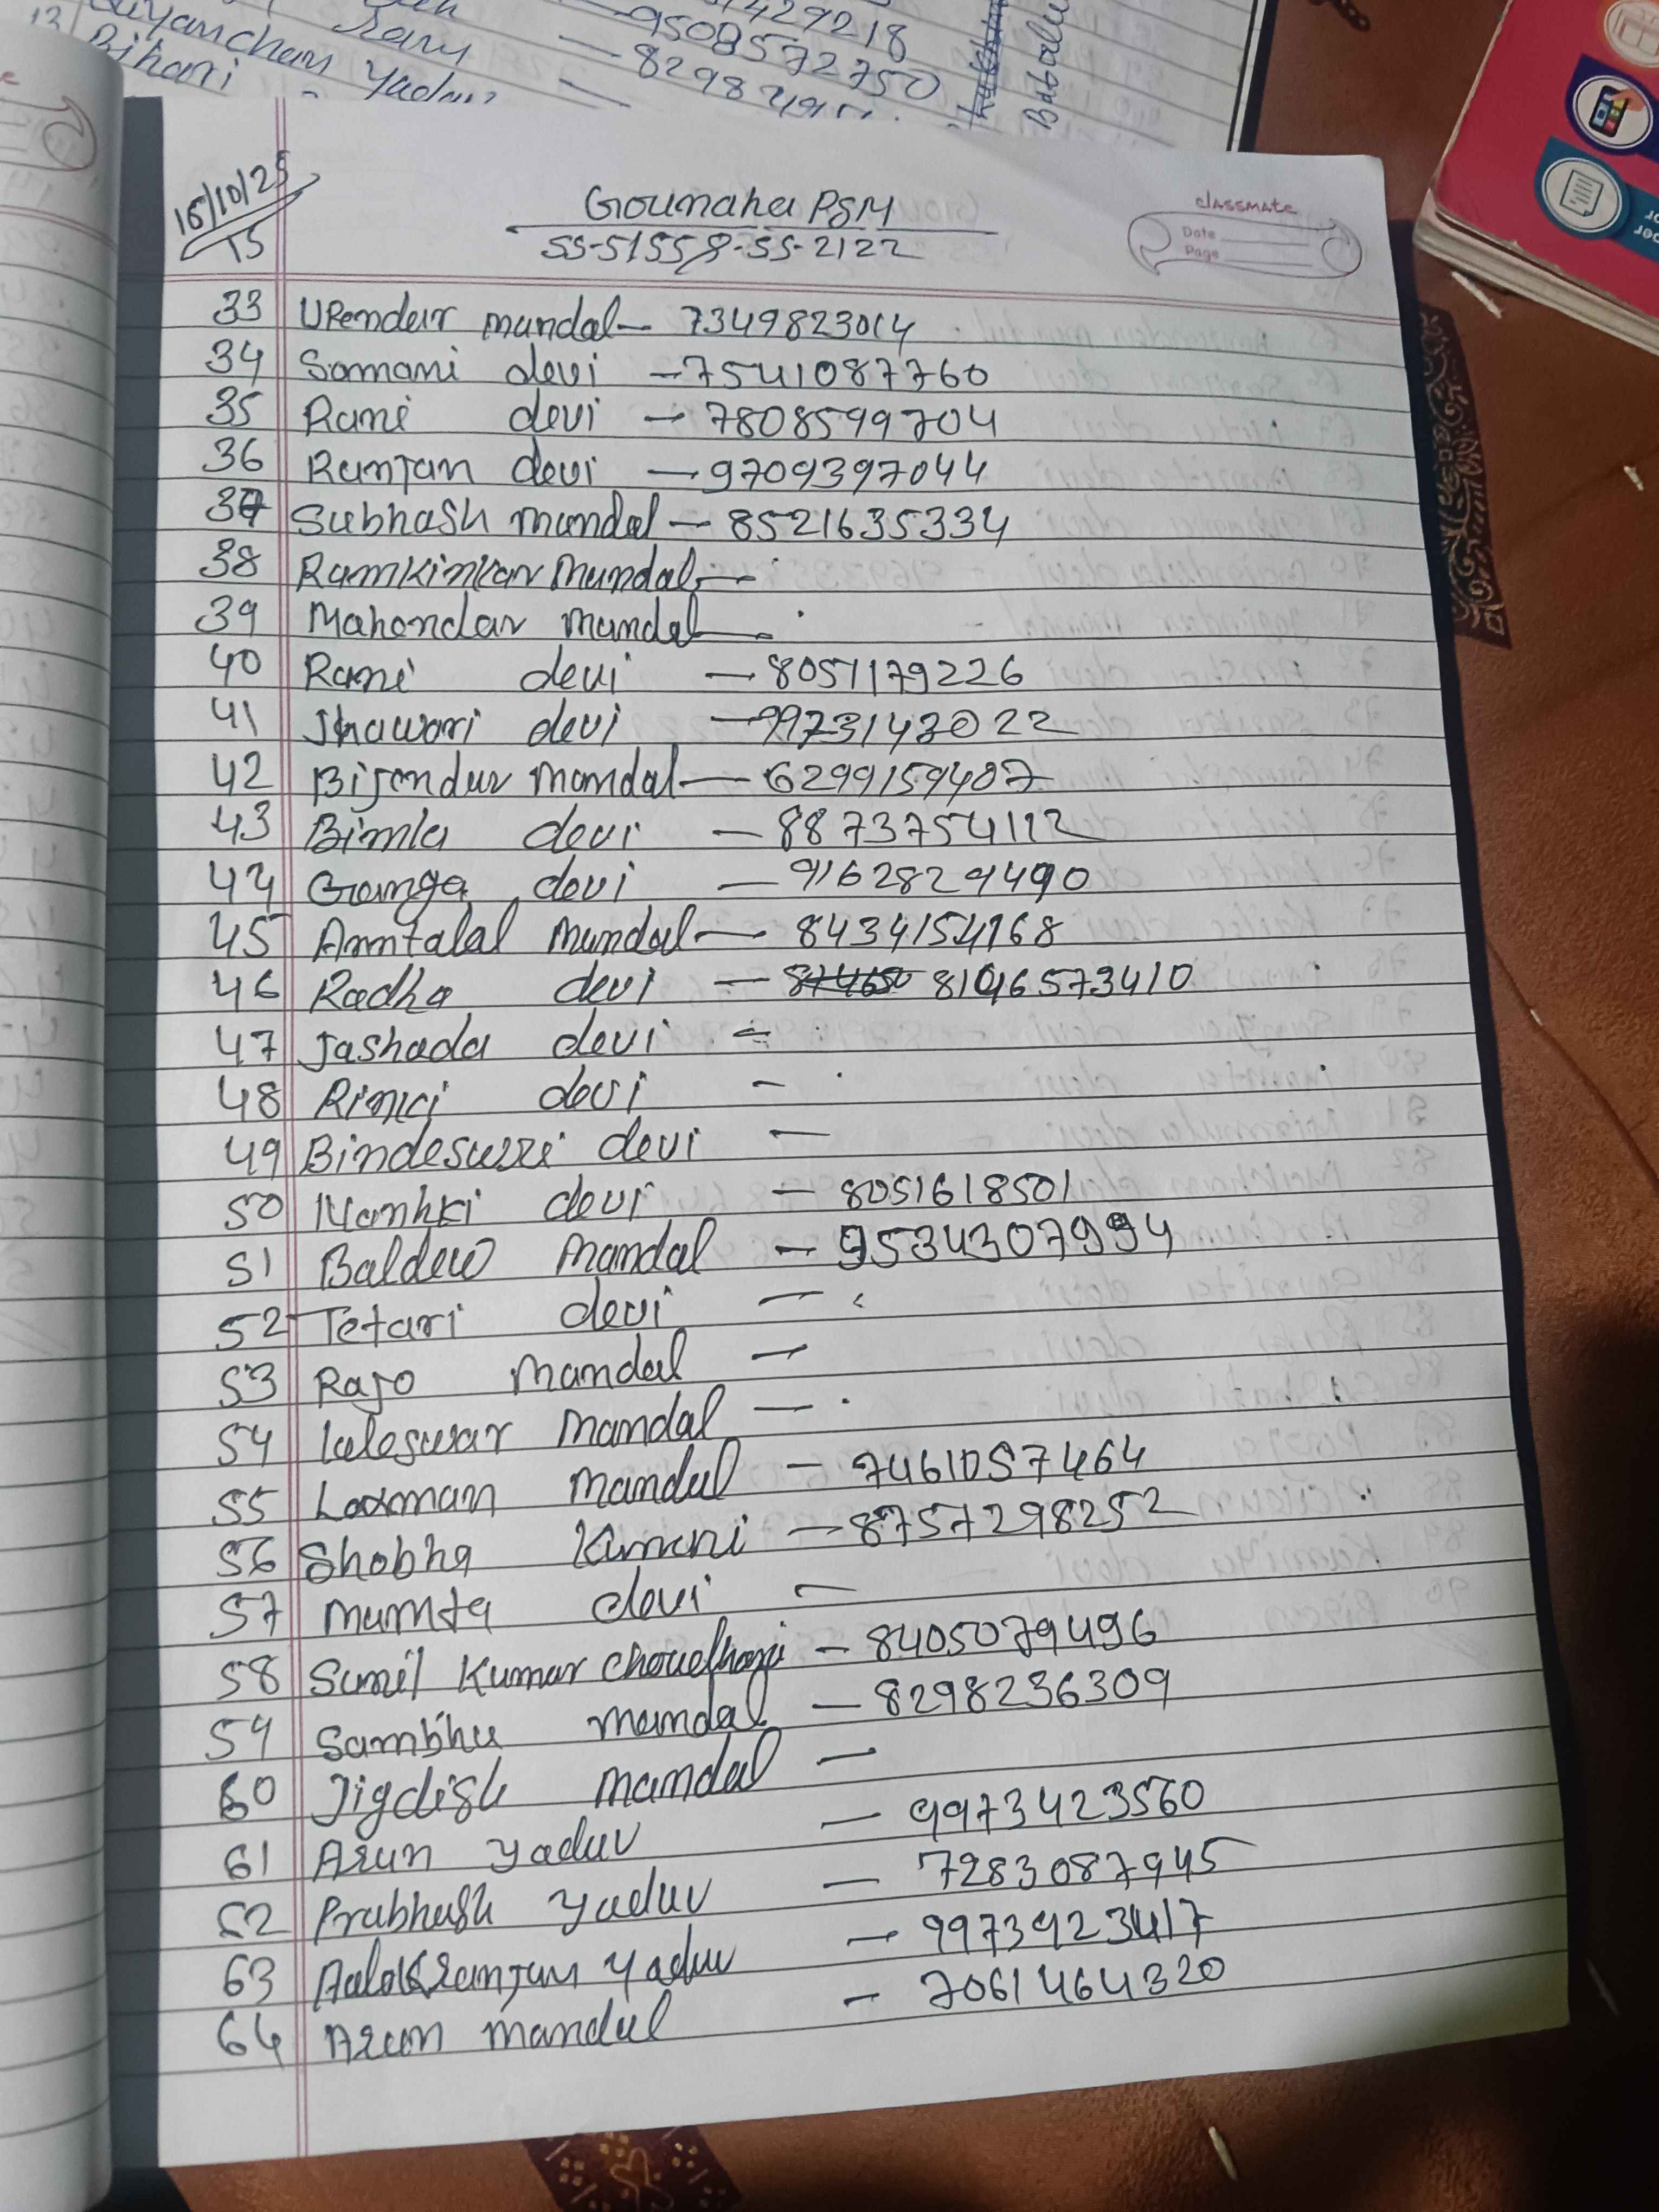 429218
Ram - 9508572750
13 Bihari Yadav - 8298
15/10/25
TS
Gounaha PSM
SS-51558-SS-2122
classmate
Date
Page
33 Upendar mandal - 7349823014
34 Somani devi - 7541087760
35 Rani devi - 7808599704
36 Ranjan devi - 9709397044
37 Subhash mandal - 8521635334
38 Ramkinkar Mandal -
39 Mahendar mandal -
40 Rani devi - 8051179226
41 Jhawari devi - 9973143022
42 Bijendar Mandal - 6299159407
43 Bimla devi - 8873754112
44 Ganga devi - 9162829490
45 Amrtalal Mandal - 8434154968
46 Radha devi - 81046573410
47 Jashada devi -
48 Rinki devi -
49 Bindeswri devi -
50 Nanhki devi - 8051618501
51 Baldew Mandal - 9534307994
52 Tetari devi -
53 Rajo Mandal -
54 Leleswar Mandal -
55 Laxman Mandal - 7461057464
56 Shobha Kumari - 8757298252
57 Mamta devi -
58 Sunil Kumar Choudhary - 8405079496
59 Sambhu Mandal - 8298236309
60 Jigdish Mandal -
61 Arun Yadav - 9973423560
62 Prabhash Yadav - 7283087945
63 Aalok Ranjan Yadav - 9973923417
64 Arun Mandal - 7061464320